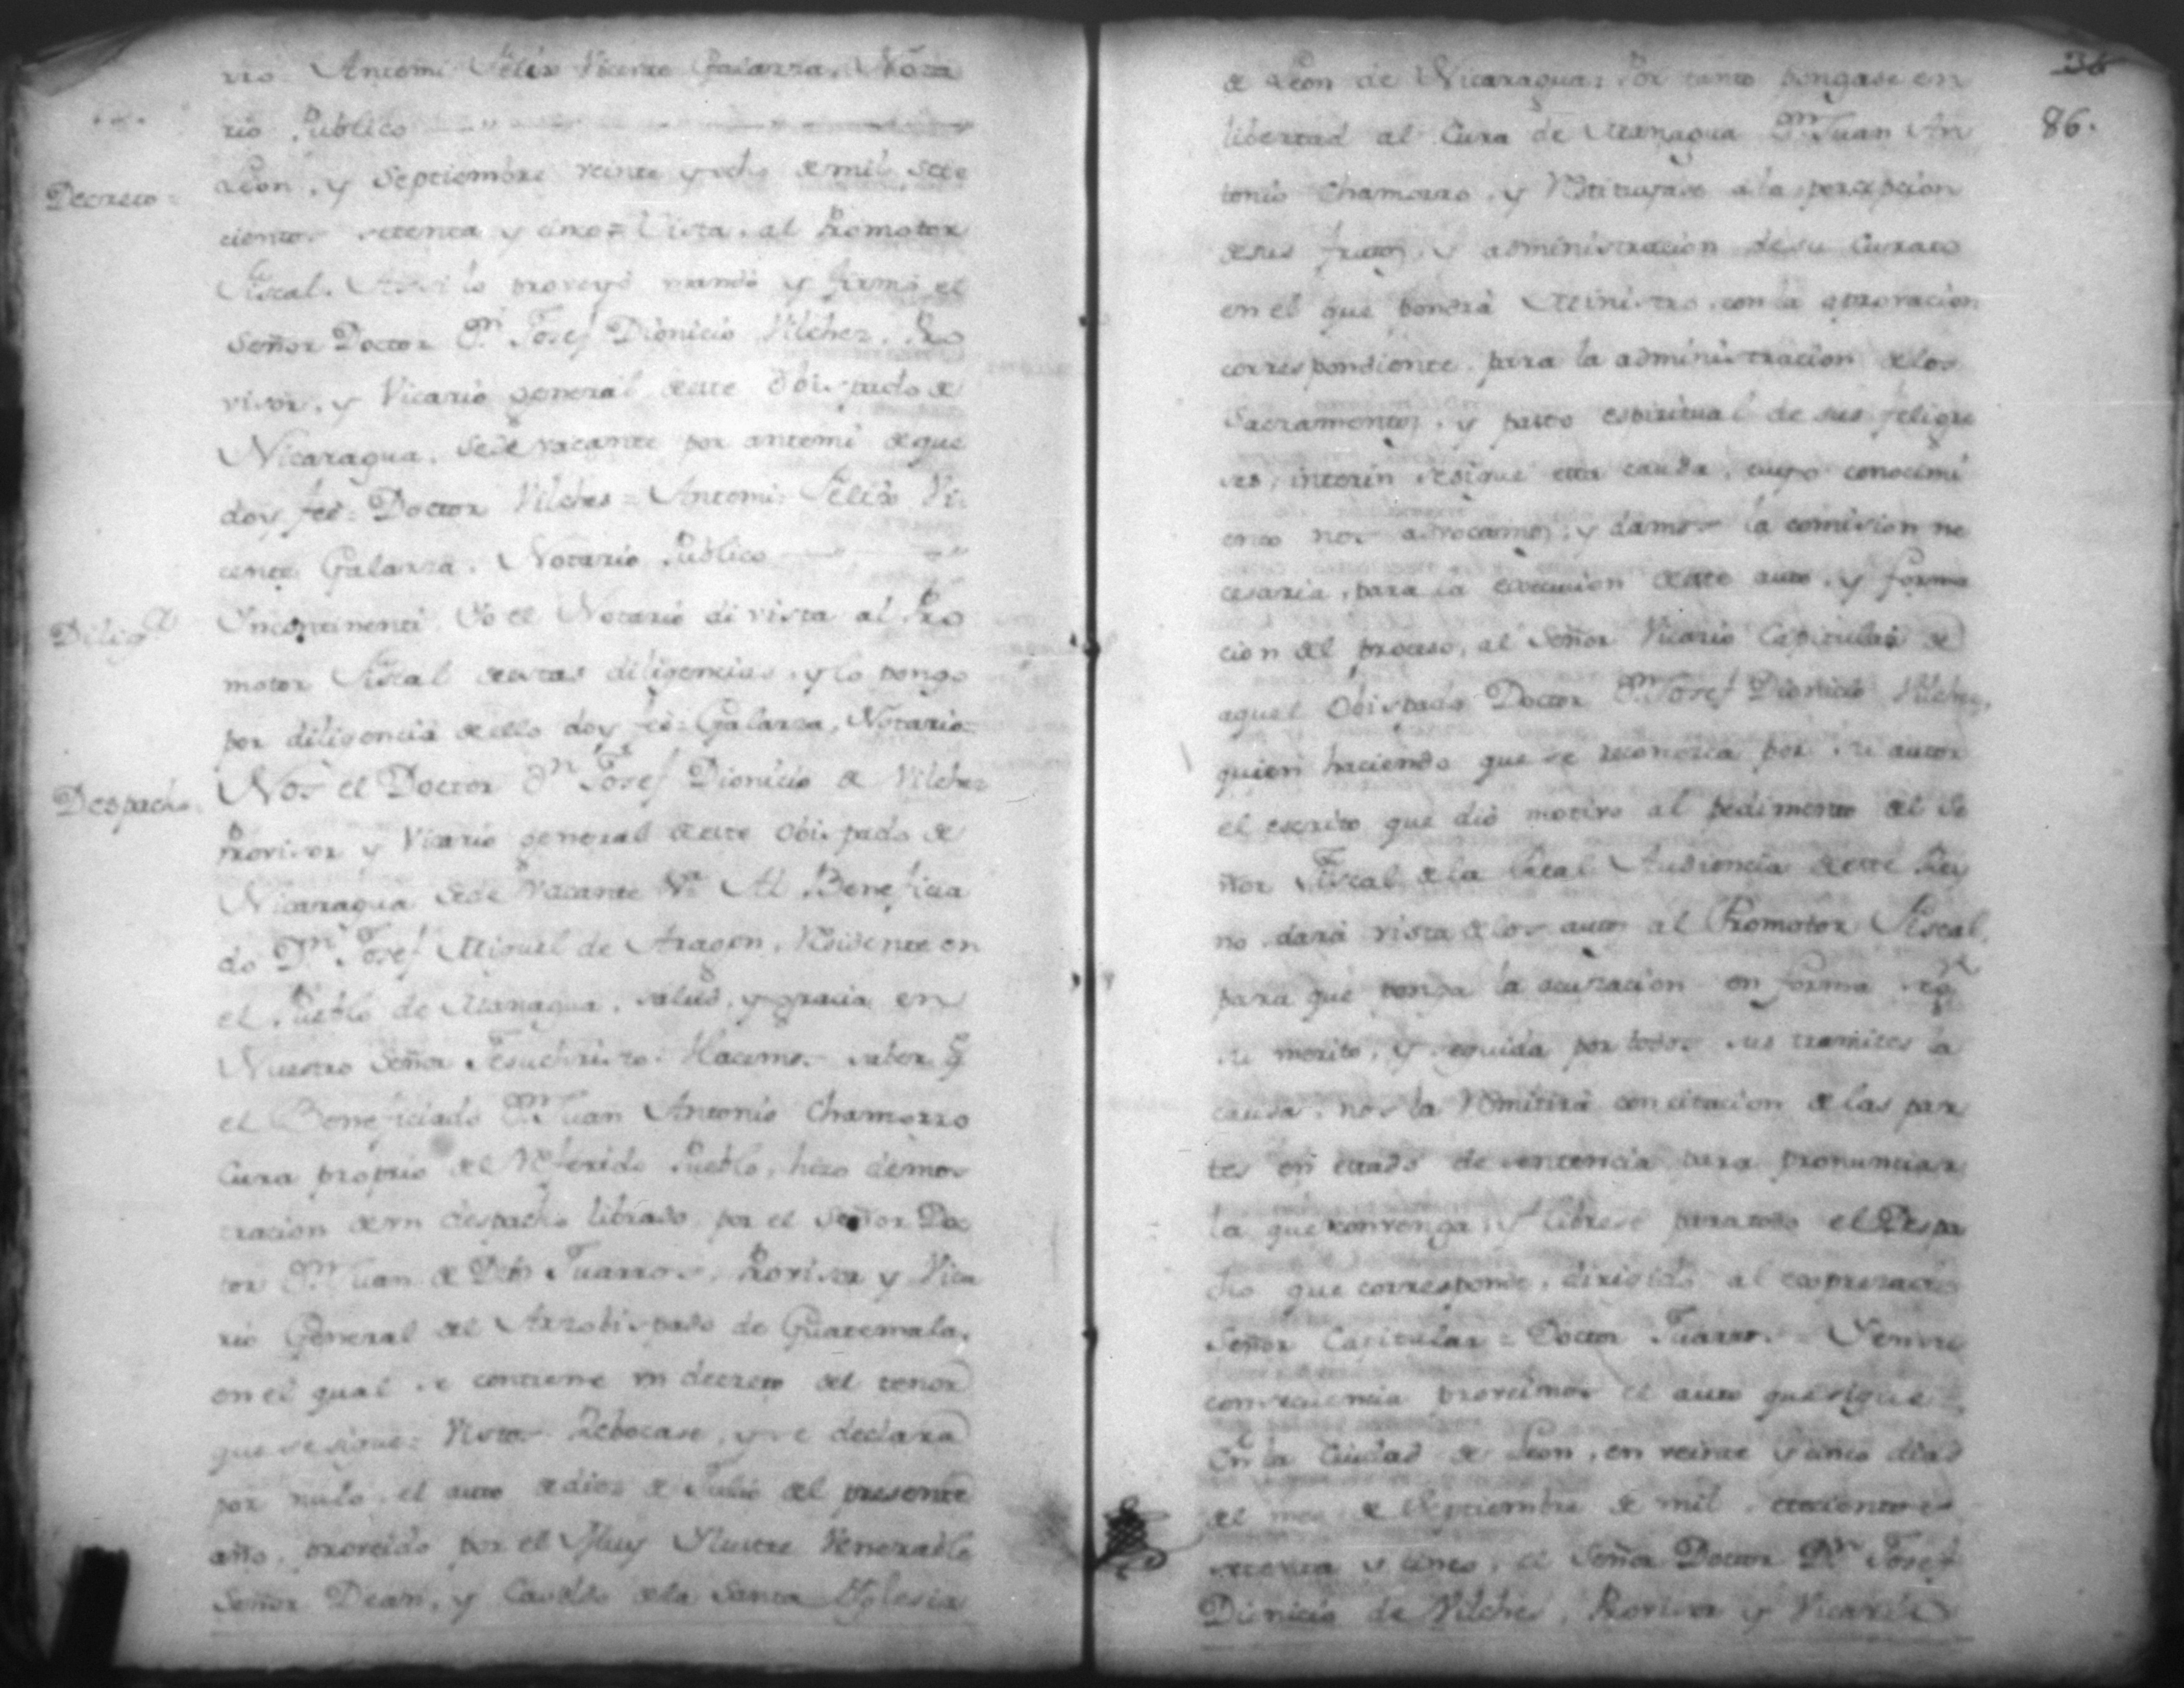 rio Antemi Felix Vicente Galarza, Nota
rio Publico
Decreto =
Leon, y Septiembre veinte y ocho de mil sete
cientos setenta y cinco = Vista, al Promotor
Fiscal. Assi lo proveyó mandó y firmó el
Señor Doctor Dn. Josef Dionicio Vilchez, Pro
visor, y Vicario general deeste Obispado de
Nicaragua, Sede vacante por antemi de que
doy feé = Doctor Vilches = Antemi = Felix Vi
cente Galarza, Notario Publico
Diliga
Yncontinenti Yo el Notario di vista al Pro
motor Fiscal deestas diligencias, y lo pongo
por diligencia deello doy feé = Galarza, Notario =
Despacho.
Nos el Doctor Dn. Josef Dionicio de Vilchez
Provisor y Vicario general deeste Obispado de
Nicaragua Sede Vacante Va. Al Beneficia
do Dn. Josef Miguel de Aragon, Residente en
el Pueblo de Managua, salud, y gracia en
Nuestro Señor Jesuchristo. Hacemos saber q
el Beneficiado Dn. Juan Antonio Chamorro
Cura proprio del Referido Pueblo, hizo demos
tracion de vn despacho librado por el Señor Doc
tor Dn. Juan de Dios Juarros, Provisor y Vica
rio General del Arzobispado de Guatemala,
en el qual se contiene vn decreto del tenor
que se sigue = Vistos Rebocase, y se declara
por nulo, el auto de dies de Julio del presente
año, proveido por el Muy Ylustre Venerable
Señor Dean, y Cavildo dela Santa Yglesia
36
86.
de Leon de Nicaragua: Por tanto pongase en
libertad al Cura de Managua Dn. Juan An
tonio Chamorro, y Restituyase a la percepcion
desus frutos, y administracion de su Curato
en el que pondrá Ministro, con la aprovacion
correspondiente, para la administracion de los
Sacramentos, y pasto espiritual de sus feligre
ses, interin sesigue esta causa, cuyo conocimi
ento nos avocamos, y damos la comision ne
cesaria, para la execucion deeste auto, y forma
cion del proceso, al Señor Vicario Capitular de
aquel Obispado Doctor Dn. Josef Dionicio Vilchez,
quien haciendo que se reconosca por su autor
el escrito que dió motivo al pedimento del Se
ñor Fiscal de la Real Audiencia deeste Rey
no, dará vista delos autos al Promotor Fiscal,
para que ponga la acuzacion en forma segn
su merito, y seguida por todos sus tramites la
causa, nos la Remitirá con citacion de las par
tes en estado de sentencia para pronunciar
la que convenga, y librese paratodo el Despa
cho que corresponde, dirigido al expresado
Señor Capitular = Doctor Juarros = Yensu
consecuencia proveimos el auto que sigue
En la Ciudad de Leon, en veinte y cinco dias
del mes de Septiembre de mil setecientos
setenta y cinco, el Señor Doctor Dn. Josef
Dionicio de Vilches, Provisor y Vicario